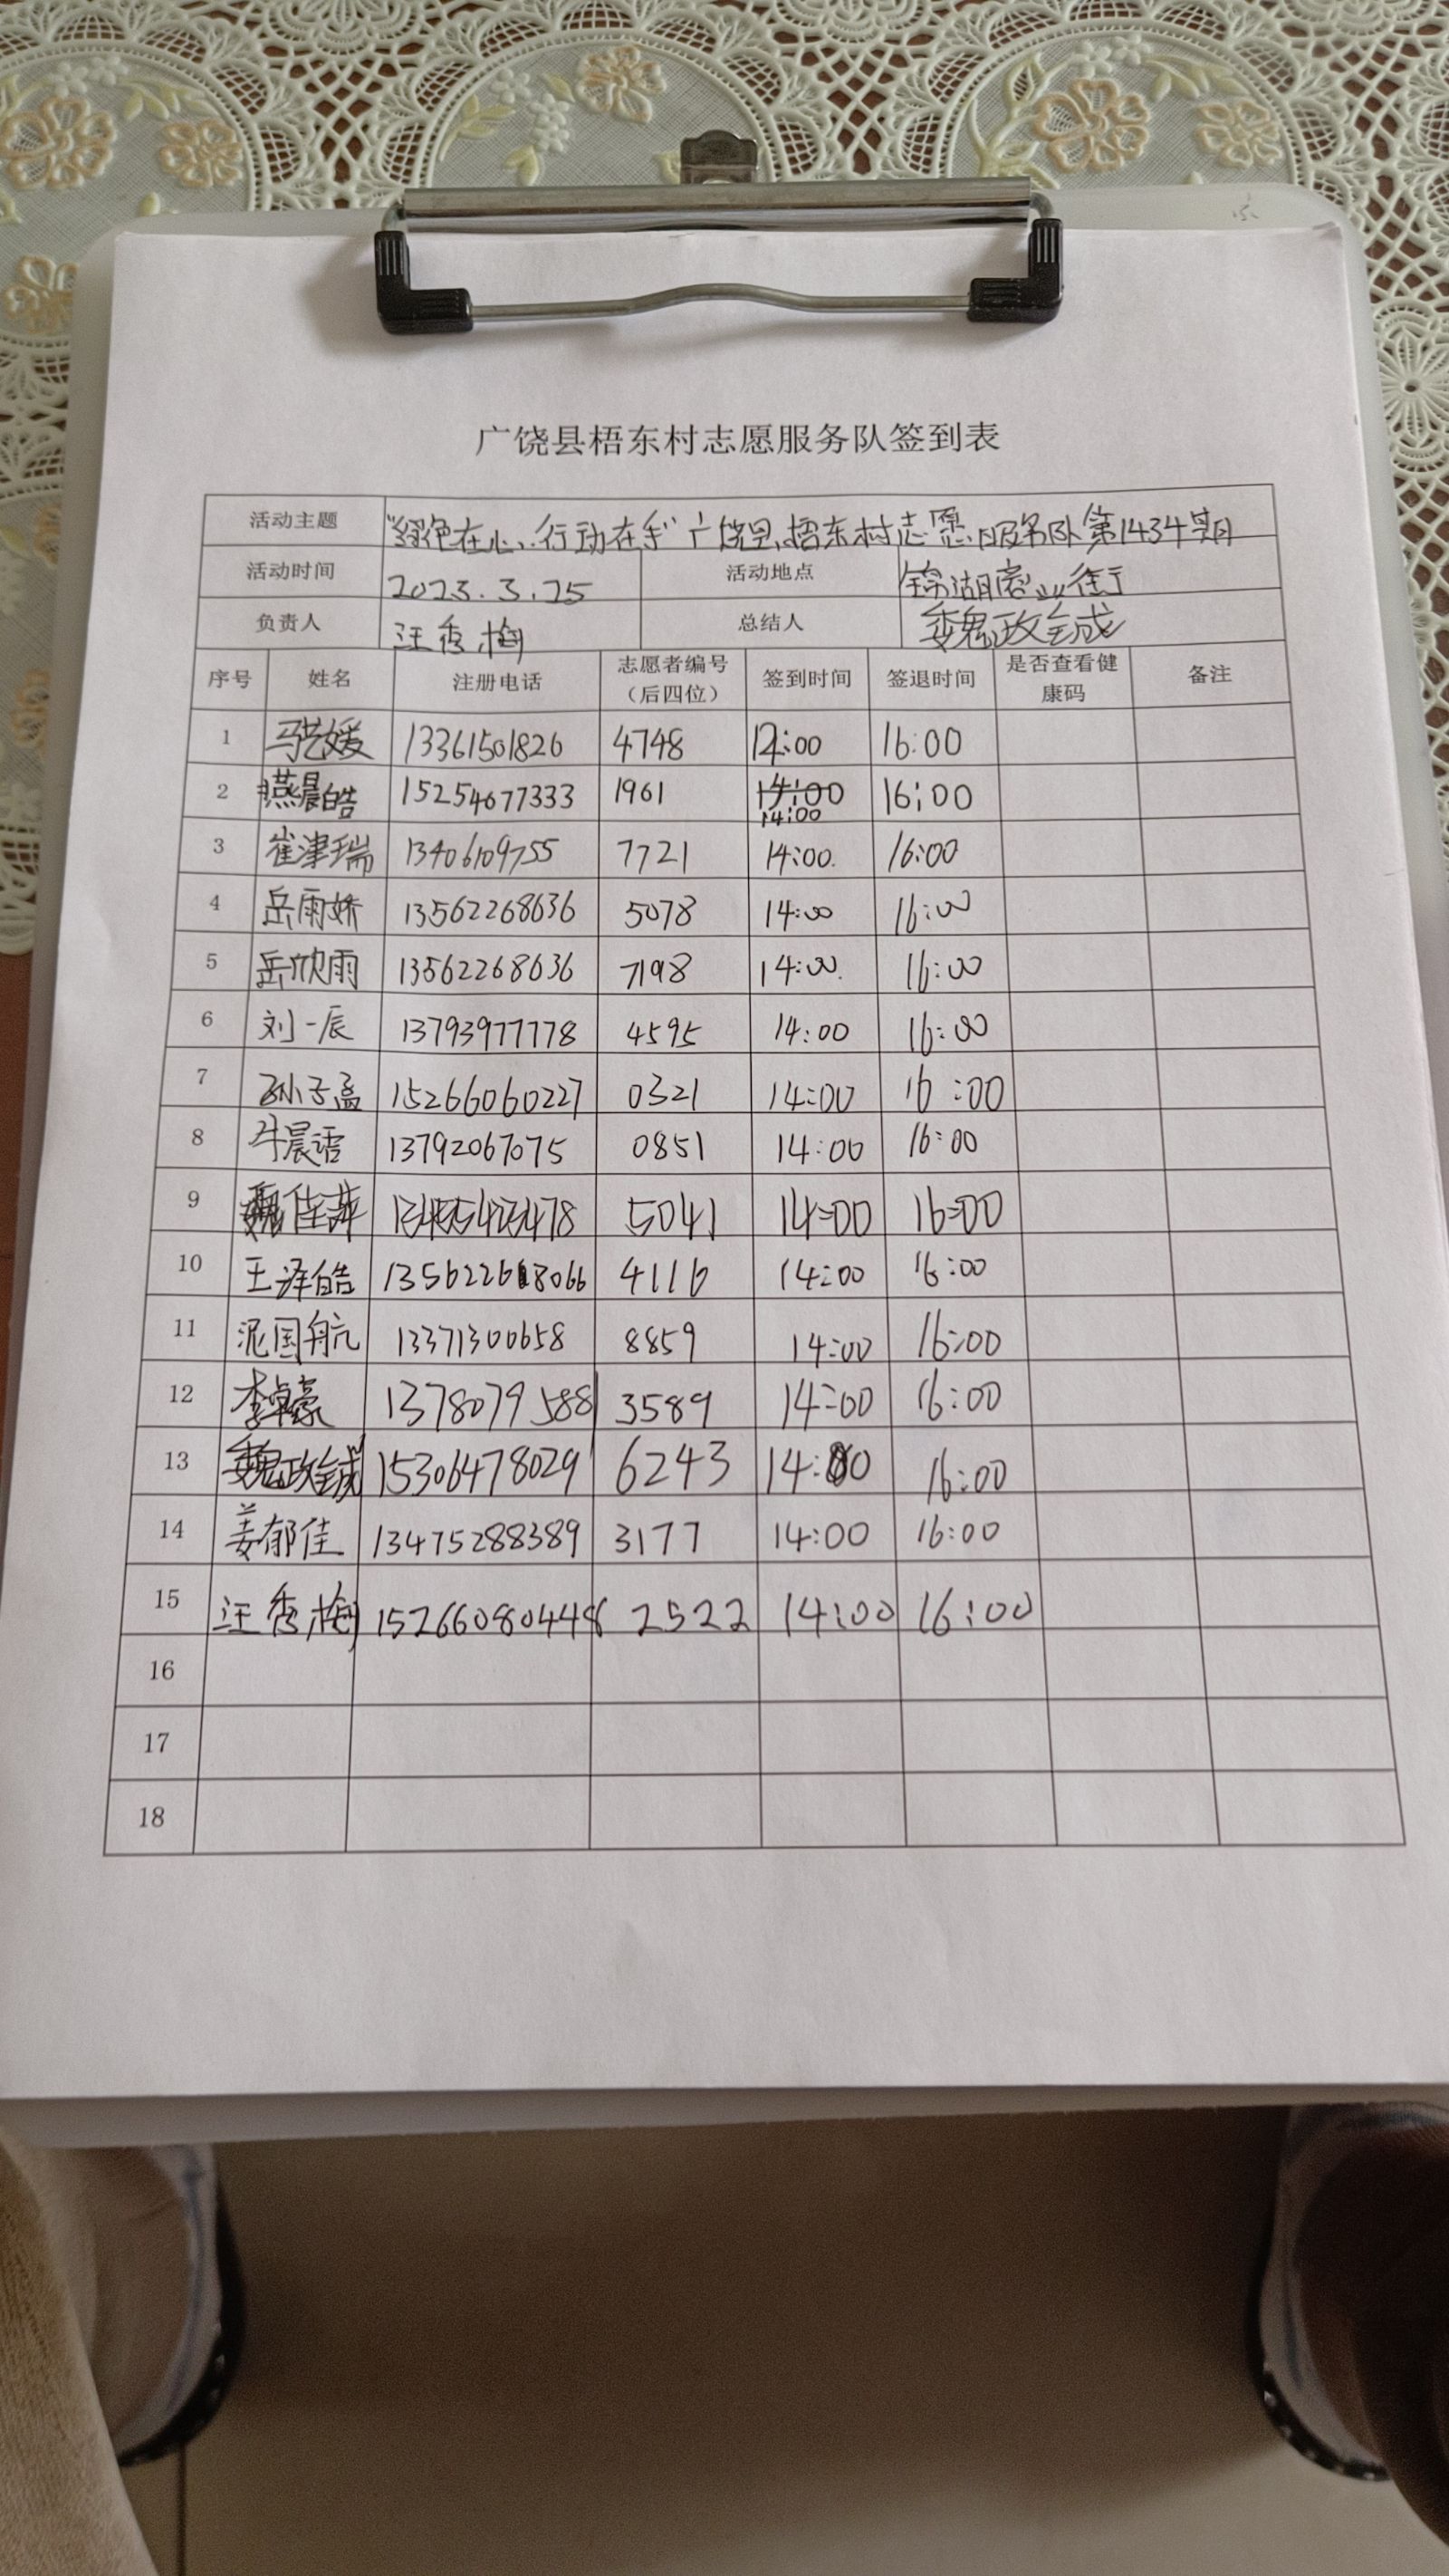 广饶县梧东村志愿服务队签到表
活动主题 "绿色在心,行动在手"广饶县梧东村志愿服务队第1434期
活动时间 2023.3.25 活动地点 锦湖商业街
负责人 汪秀梅 总结人 魏政铖
序号 姓名 注册电话 志愿者编号（后四位） 签到时间 签退时间 是否查看健康码 备注
1 马艺媛 13361501826 4748 14:00 16:00
2 燕晨皓 15254677333 1961 14:00 16:00
3 崔津瑞 13406109755 7721 14:00 16:00
4 岳雨娇 13562268636 5078 14:00 16:00
5 岳欣雨 13562268636 7198 14:00 16:00
6 刘一辰 13793977778 4595 14:00 16:00
7 孙子孟 15266060227 0321 14:00 16:00
8 牛晨语 13792067075 0851 14:00 16:00
9 魏佳萍 5041 14:00 16:00
10 王泽皓 13562268066 4116 14:00 16:00
11 泥国航 13371300658 8859 14:00 16:00
12 李卓豪 13780795881 3589 14:00 16:00
13 魏政铖 15306478029 6243 14:00 16:00
14 姜郁佳 13475288389 3177 14:00 16:00
15 汪秀梅 15266080448 2522 14:00 16:00
16
17
18